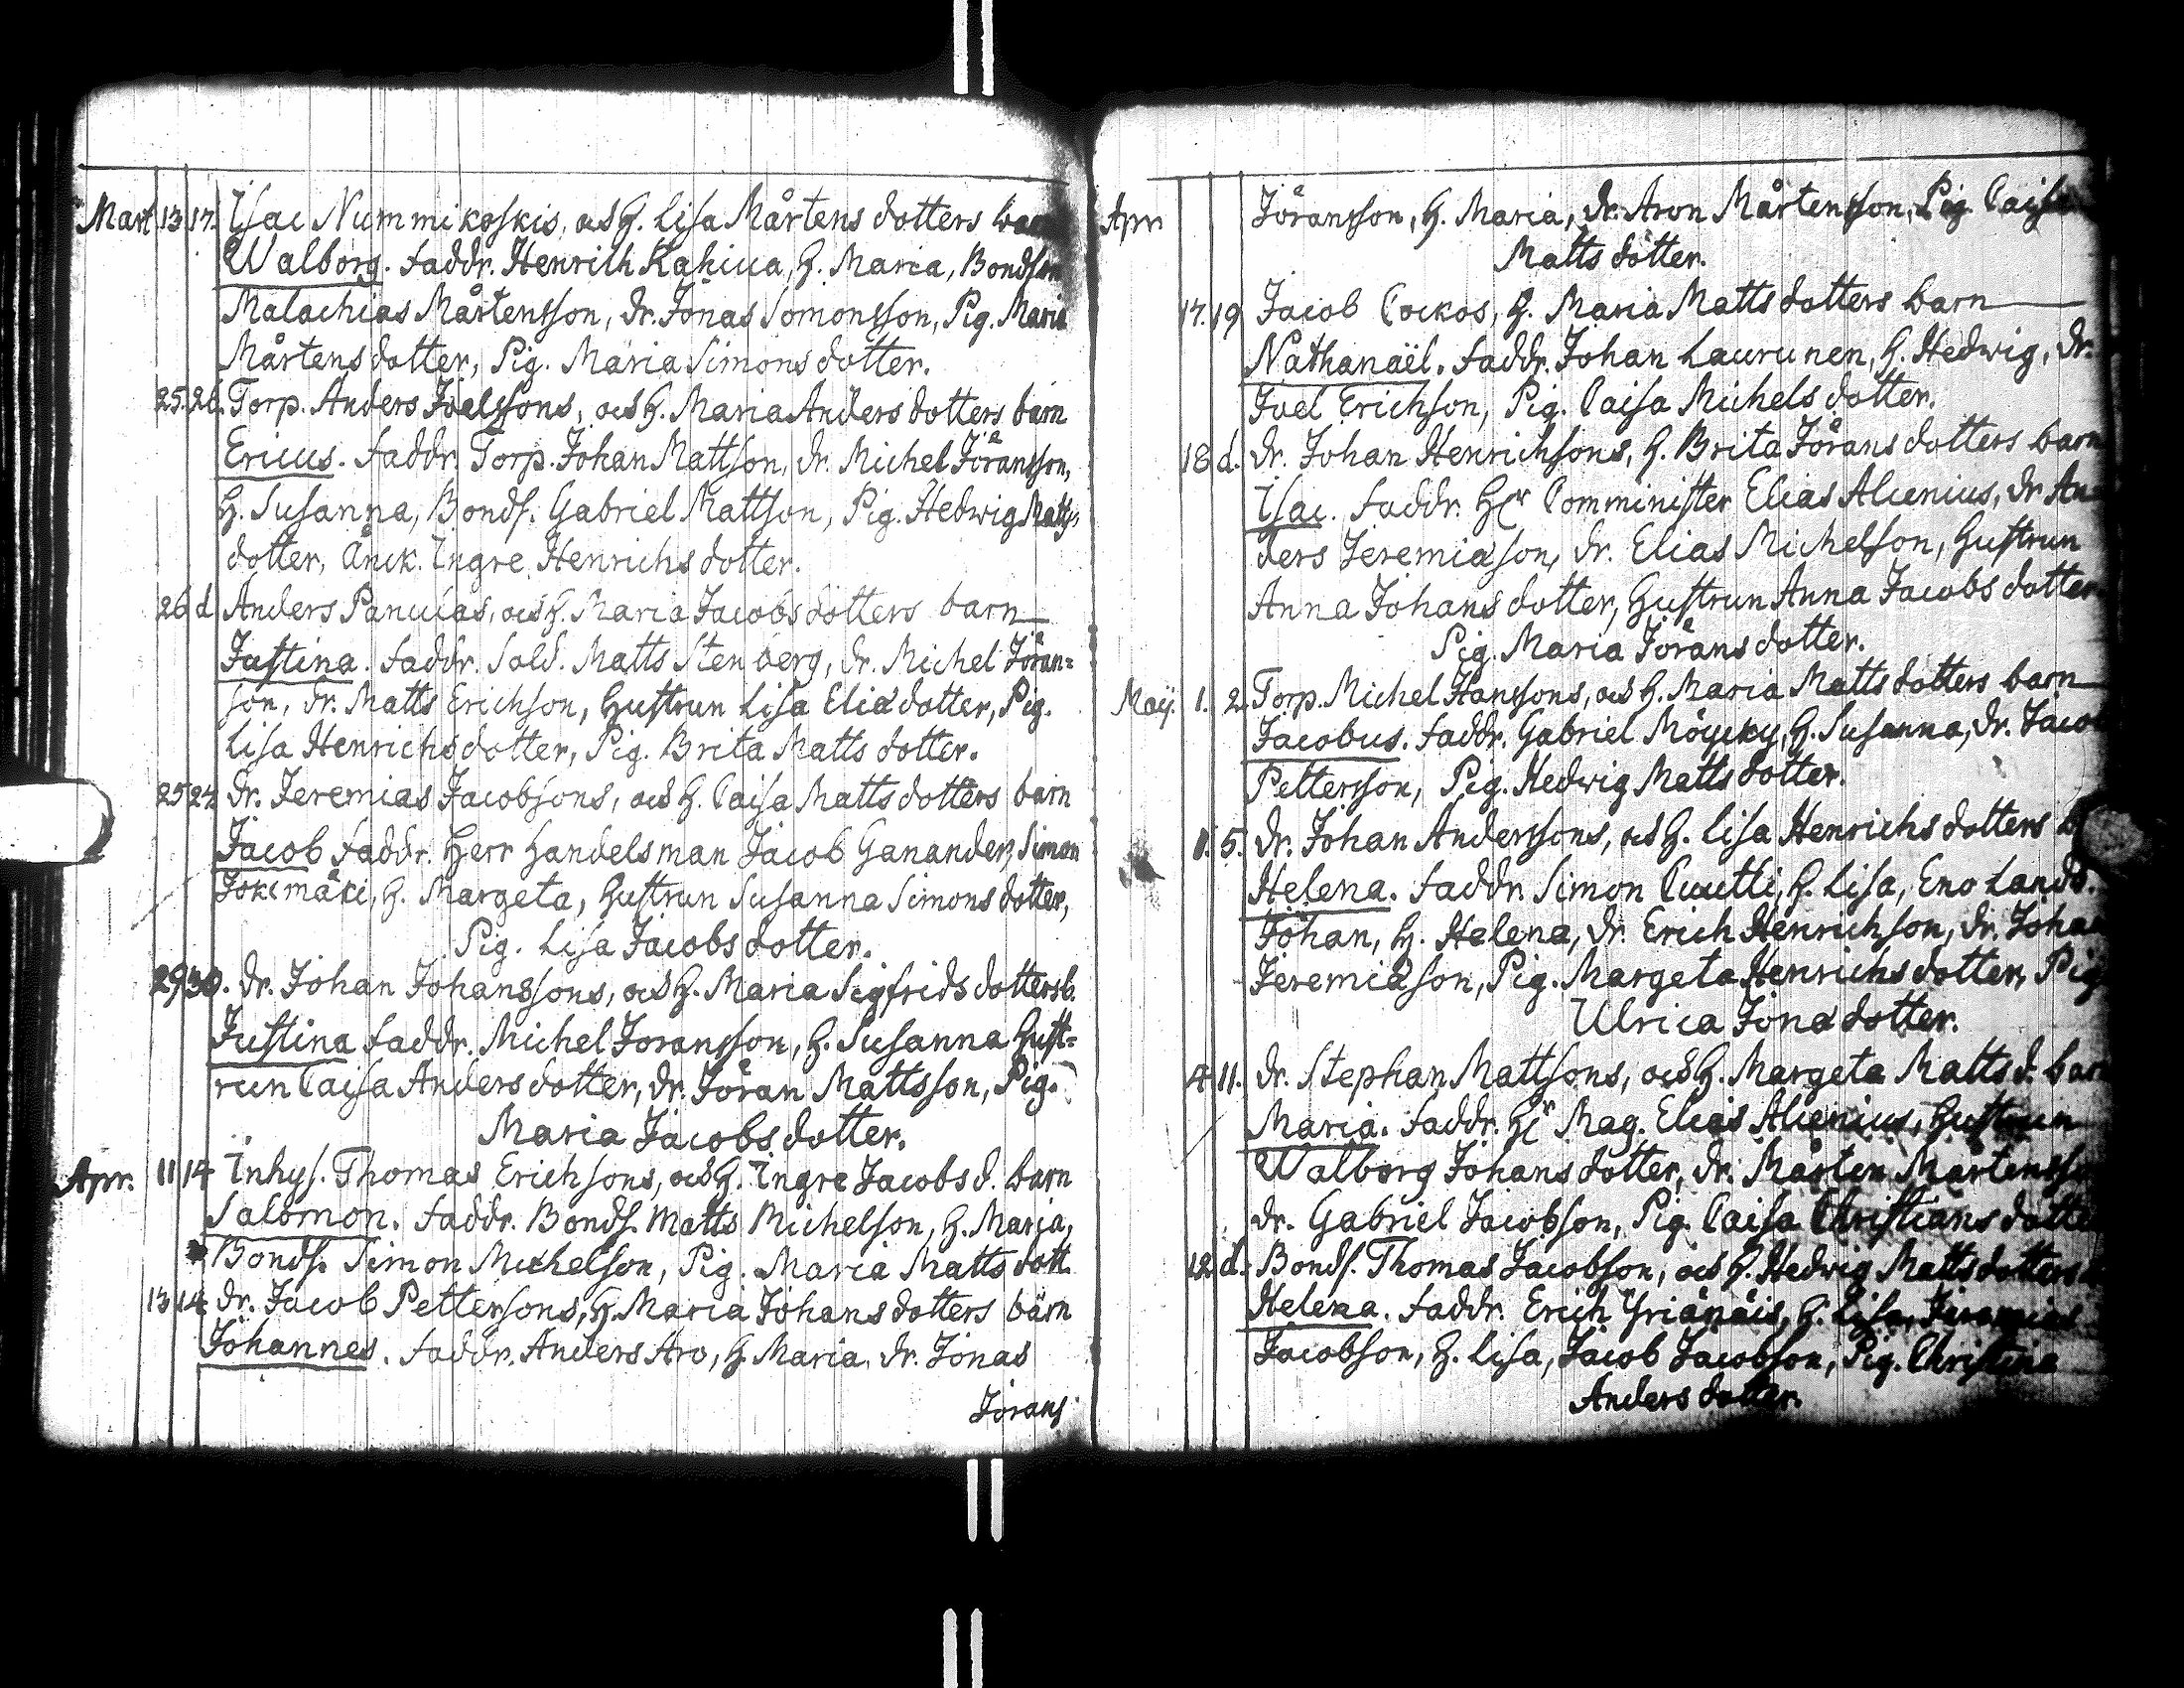 Mart 13 17. Isac Nummikoskis, och H. Lisa Mårtens dotters barn
Walborg. Faddr. Henrich Kahiua, H. Maria, Bondson
Malachias Mårtensson, Dr. Jonas Somonsson, Pig. Maria
Mårtens dotter, Pig. Maria Simons dotter.
25. 26. Torp. Anders Joelssons, och H. Maria Anders dotters barn
Ericus. Faddr. Torp. Johan Mattson, Dr. Michel Jöransson,
H. Susanna, Bonds. Gabriel Mattson, Pig. Hedwig Matts
dotter, Änck. Ingre Henrichs dotter.
26 d Anders Panulas, och H. Maria Jacobs dotters barn
Justina. Faddr. Sold. Matts Stenberg, Dr. Michel Jöran=
son, Dr. Matts Erichson, Hustrun Lisa Eliæ dotter, Pig.
Lisa Henrichs dotter, Pig. Brita Matts dotter.
25 27. Dr. Jeremias Jacobsons, och H. Caisa Matts dotters barn
Jacob Faddr. Herr Handelsman Jacob Ganander, Simon
Jokimäki, H. Margeta, Hustrun Susanna Simons dotter,
Pig. Lisa Jacobs dotter.
29 30. Dr. Johan Johanssons, och H. Maria Sigfrids dotters b.
Justina Faddr. Michel Joransson, H. Susanna Hust=
run Caisa Anders dotter, Dr. Jöran Mattsson, Pig.
Maria Jacobs dotter.
Apr. 11 14 Inhys. Thomas Erichsons, och H. Ingre Jacobs d. barn
Salomon. Faddr. Bonds. Matts Michelson, H. Maria,
Bonds. Simon Michelson, Pig. Maria Matts dott.
13 14 Dr. Jacob Pettersons, H. Maria Johans dotters barn
Johannes. Faddr. Anders Aro, H. Maria, Dr. Jonas
Jörans
Apr Jöransson, H. Maria, Dr. Aron Mårtensson, Pig. Caisa
Matts dotter.
17. 19 Jacob Cockos, H. Maria Matts dotters barn
Nathanaël. Faddr. Johan Laurunen, H. Hedwig, Dr.
Joel Erichson, Pig. Caisa Michels dotter.
18 d. Dr. Johan Henrichsons, H. Brita Jörans dotters barn
Isac. Faddr. Hr Comminister Elias Alcenius, Dr An=
ders Jeremiæson, Dr. Elias Michelson, Hustrun
Anna Johans dotter, Hustrun Anna Jacobs dotter
Pig. Maria Jörans dotter.
Maij. 1. 2. Torp. Michel Hanssons, och H. Maria Matts dotters barn
Jacobus. Faddr. Gabriel Möycky, H. Susanna, Dr. Jacob
Pettersson, Pig. Hedwig Matts dotter.
1. 5. Dr. Johan Anderssons, och H. Lisa Henrichs dotters
Helena. Faddr. Simon Cuutti, H. Lisa, Eno Lands.
Johan, H. Helena, Dr. Erich Henrichson, Dr. Johan
Jeremiæson, Pig. Margeta Henrichs dotter, Pig
Ulrica Jonæ dotter.
4. 11. Dr. Stephan Mattsons, och H. Margeta Matts d. barn
Maria. Faddr. Hr Mag. Elias Alcenius, Hustrun
Walborg Johans dotter, Dr. Mårten Mårtensson
Dr. Gabriel Jacobson, Pig. Caisa Christians dotter
12. d. Bonds. Thomas Jacobson, och H. Hedwig Matts dotters
Helena. Faddr. Erich Yriänäis, H. Lisa, Jeremias
Jacobson, H. Lisa, Jacob Jacobson, Pig. Christina
Anders dotter.